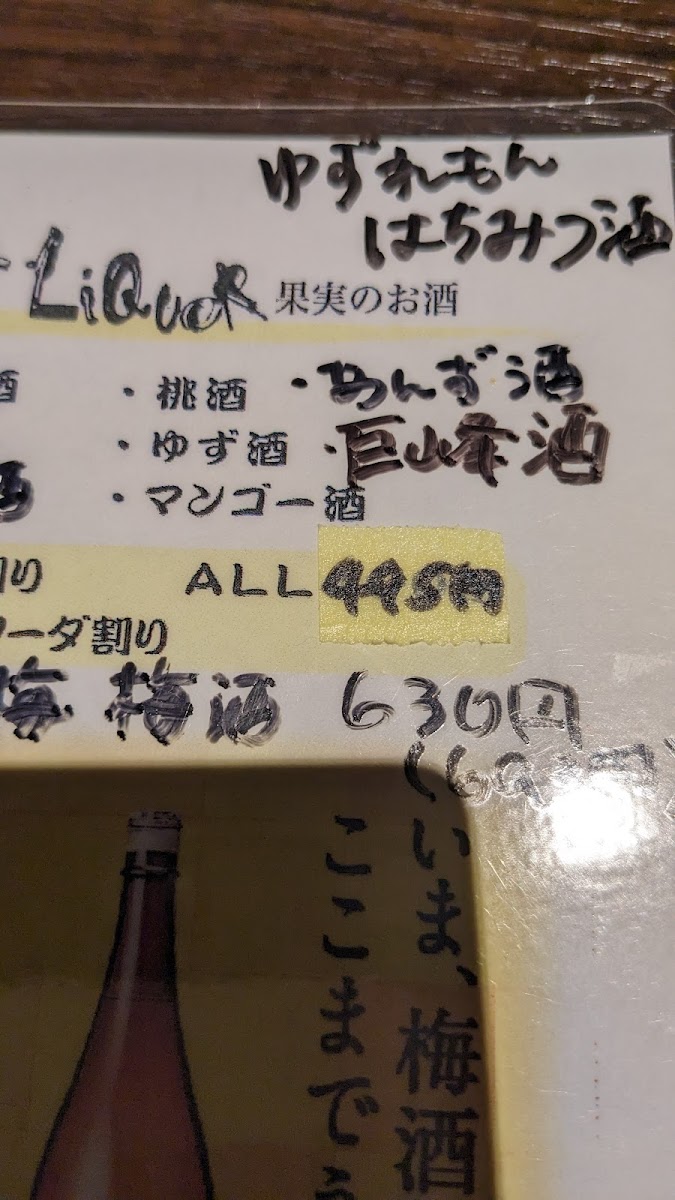 ゆずれもん
はちみつ酒
LiQuoR 果実のお酒
酒 ・桃酒 ・あんず酒
・ゆず酒 ・巨峰酒
酒 ・マンゴー酒
割り ALL 495円
ソーダ割り
梅 梅酒 630円
いま、梅酒
ここまで